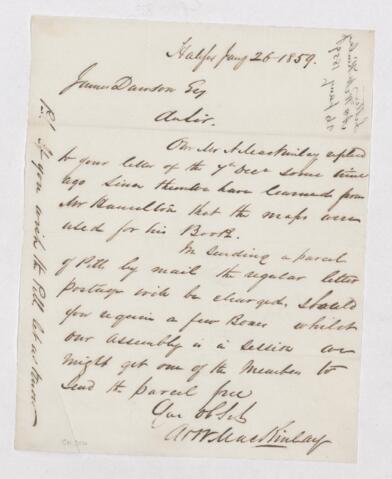 Halifax Jany 26 1859.
James Dawson Esq
Dr Sir.
Our Mr A MacKinlay replied
to your letter of the 7th Decr some time
ago Since then we have learned from
Mr Hamilton that the maps were
used for his Book.
In sending a parcel
of Pills by mail the regular letter
Postage will be charged, should
you require a few Boxes whilst
our assembly is in session we
might get one of the Members to
send the parcel free
Your Ob Sts
A & W MacKinlay
P.S. If you wish the Pills let us know
26 Jany 1859